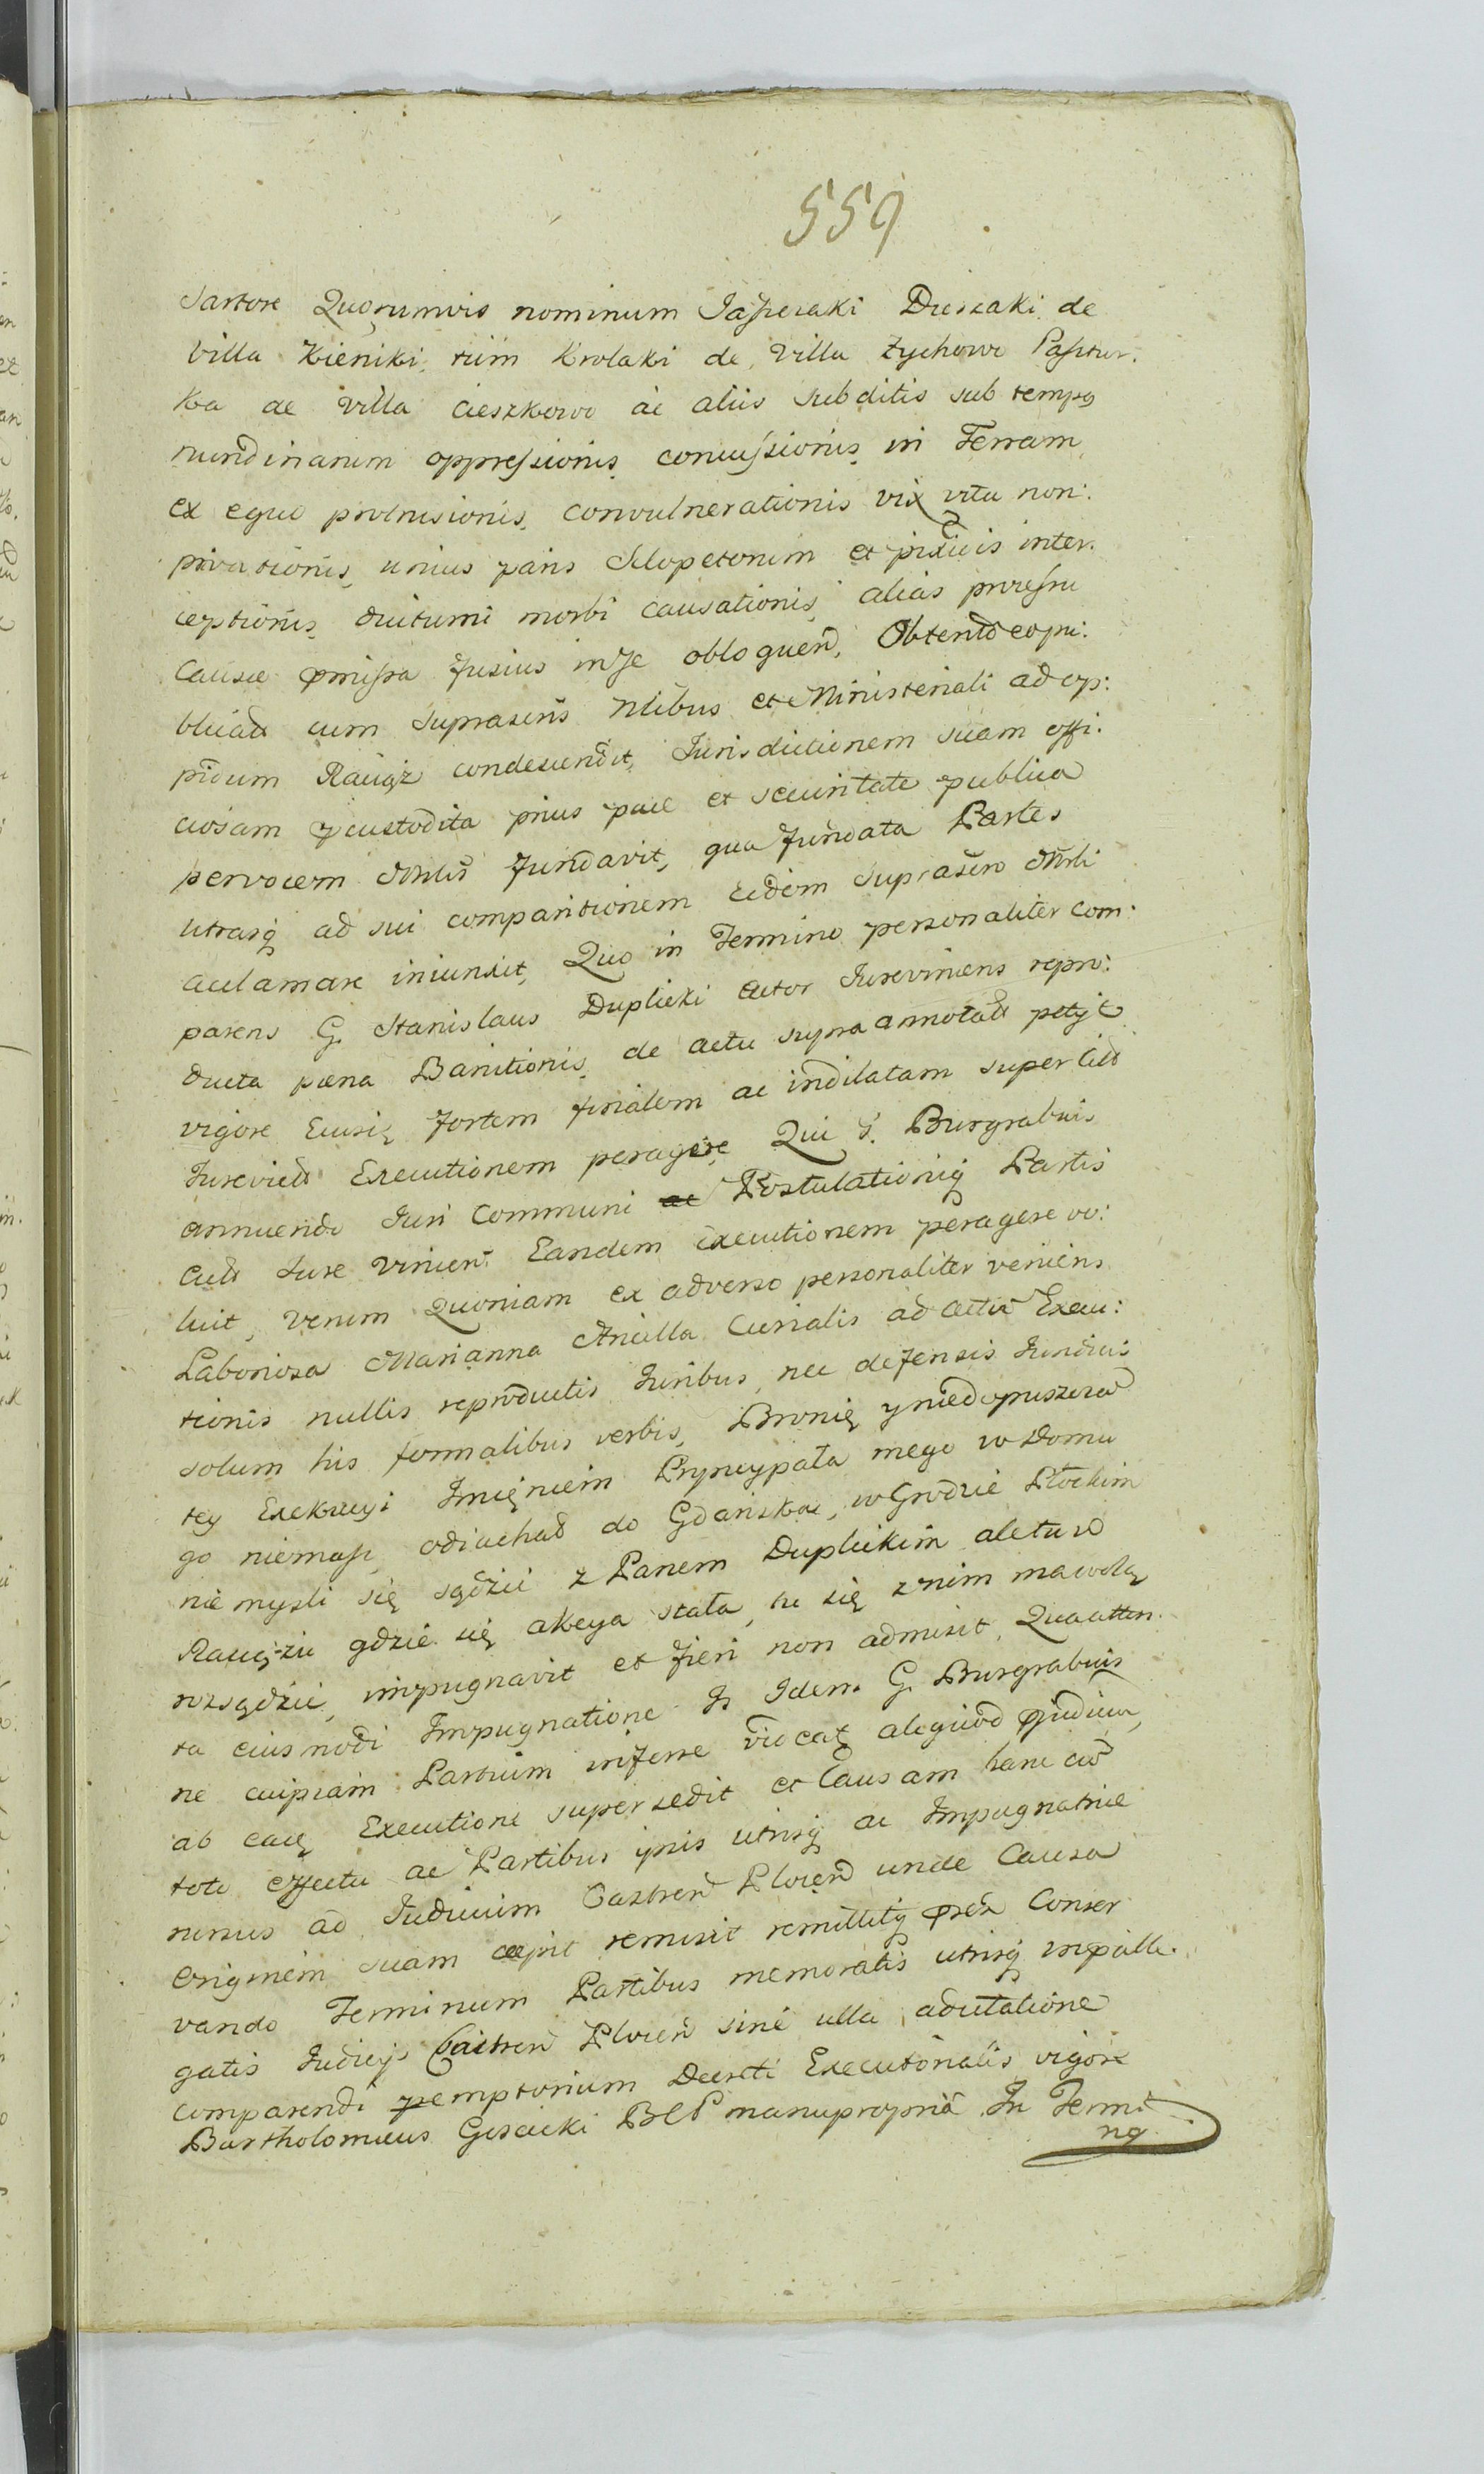 559
Sartore Quorumvis nominum Jasperaki Duszaki de
Villa Kieniki, tum Krolaki de Villa Zychowo Pastur-
ka de Villa Cieszkowo ac aliis Subditis sub tempꝯ
nundinarum oppressionis concussionis in Terram
ex equo protrusionis, convulnerationis vix vita non
privationis, unius paris Sclopetorum et pixidis inter-
ceptionis, diuturni morbi causationis alias processu
Causae pmissa fusius in se obloquen̄.
cum Suprascrīs Nlibus et Ministeriali ad op:
pidum Raciąż condescendit, Jurisdictionem suam offi:
ciosam custodita prius pace et securitate publica
per vocem Mnlis fundavit, qua fundata Partes
utrasq ad sui comparitionem eidem Suprascr̄o Mnrli
acclamare iniunxit, Quo in Termino personaliter com:
parens G. Stanislaus Duplicki Actor Jurevincens repro:
ducta paena Banitionis de actu supra annotato petijt
vigore Eiusq fortem finalem ac indilatam super Citō
Jurevictō Executionem peragere, Qui G. Burgrabius
annuendo Juri Communi ac Postulationiq Partis
Jure Vincen: Eandem executionem peragere vo:
luit, Verum Quoniam ex adverso personaliter veniens
Laboriosa Marianna Ancilla Curialis ad Actū Execu:
tionis nullis reproductis Juribus, nec defensis Juridicis
solum his formalibus verbis, Bronię y niedopuszczā
tey Exekucyi Imięniem Pryncypała mego w Domu
go niemasz, odiechał do Gdańska, w Grodzie Płockim
nie myśli się sądzić z Panem Duplickim ale tu w
Raciążiu gdzie się akcya stała, tu się znim ma wolą
rozsądzić, impugnavit et fieri non admisit, Qua atten
ta eiusmodi Impugnatione Is Idem G. Burgrabius
ne cuipiam Partium inferre aliquod
ab eaq Executione supersedit et Causam hanc cū
toto effectu ac Partibus ipsis utrisq ac Impugnatrice
ad Judicium Castren̄ Plocen̄ unde Causa
Originem suam cepit remisit remittitq Conser
vando Terminum Partibus memoratis utrisq in
gatis Judicijs Castren̄ Plocen̄ sine ulla adcitatione
comparendi pemptorium Decreti Executorialis vigore
Bartholomeus Goscicki BCP manupropria In Termi
nꝯ